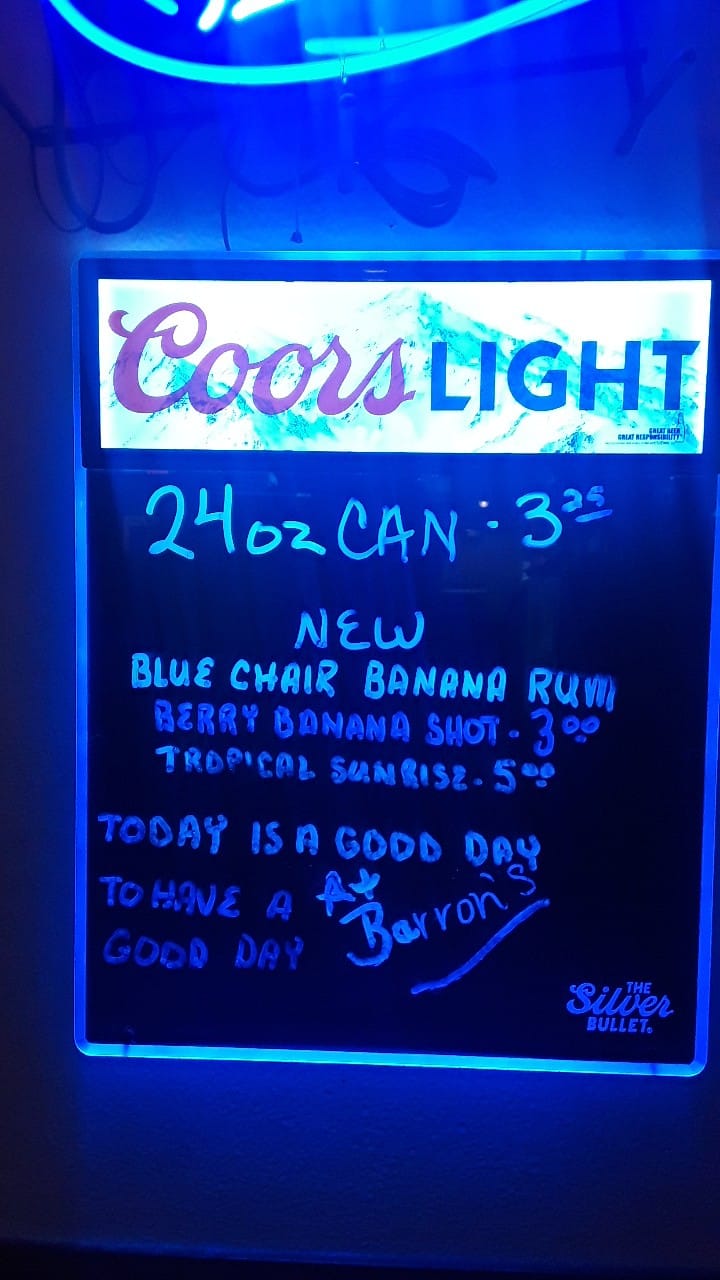 Coors LIGHT
GREAT BEER
GREAT RESPONSIBILITY
24oz CAN - 3 25
NEW
BLUE CHAIR BANANA RUM
BERRY BANANA SHOT - 3 00
TROPICAL SUNRISE - 5 00
TODAY IS A GOOD DAY
TO HAVE A
GOOD DAY
At
Barron's
THE
Silver
BULLET.